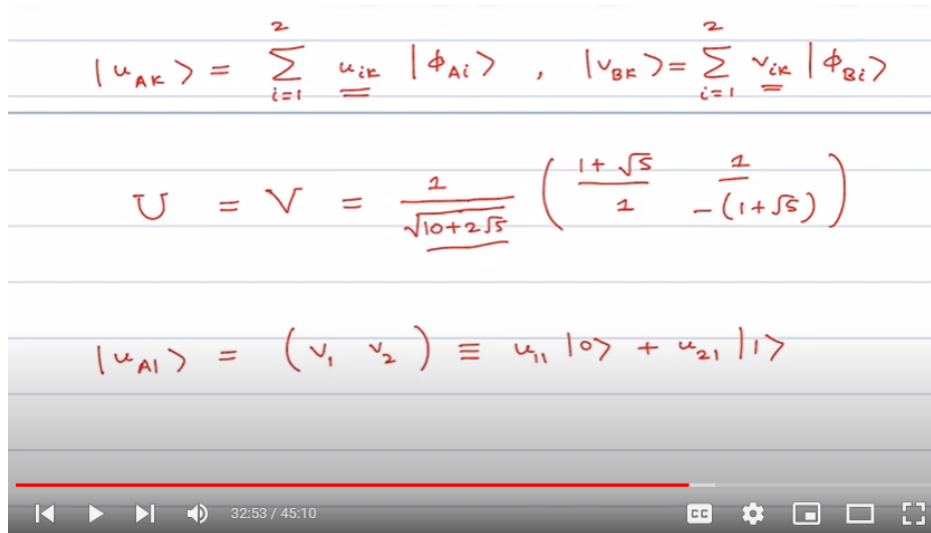 |u_AK⟩ = ∑_{i=1}^{2} u_iK |ϕ_Ai⟩ , |v_BK⟩ = ∑_{i=1}^{2} v_iK |ϕ_Bi⟩
U = V = 1/√(10+2√5) ( 1+√5 1
1 -(1+√5) )
|u_A1⟩ = (v_1 v_2) ≡ u_11 |0⟩ + u_21 |1⟩
32:53 / 45:10 CC